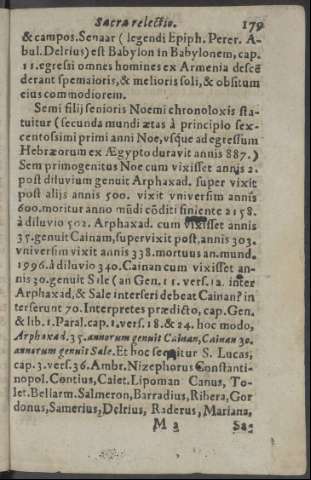 Sacræ relectio. 179
& campos. Senaar ( legendi Epiph. Perer. A-
bul. Delrius) est Babylon in Babylonem, cap.
11. egressi omnes homines ex Armenia descē
derant spe maioris, & melioris soli, & obsitum
eius commodiorem.
Semi filij senioris Noemi chronoloxis sta-
tuitur (secunda mundi ætas à principio sex-
centossimi primi anni Noe, vsque ad egressum
Hebræorum ex Ægypto duravit annis 887.)
Sem primogenitus Noe cum vixisset annis 2.
post diluvium genuit Arphaxad. super vixit
post alijs annis 500. vixit vniversim annis
600. moritur anno mūdi cōditi finiente 2158.
à diluvio 502. Arphaxad. cum vixisset annis
35. genuit Cainam, supervixit post, annis 303.
vniversim vixit annis 338. mortuus an. mund.
1996. à diluvio 340. Cainan cum vixisset an-
nis 30. genuit Sale (an Gen. 11. vers. 12. inter
Arphaxad, & Sale interseri debeat Cainan? in
terserunt 70. Interpretes prædicto, cap. Gen.
& lib. 1. Paral. cap. 1. vers. 18. & 24. hoc modo,
Arphaxad. 35. annorum genuit Cainan, Cainan 30.
annorum genuit Sale. Et hoc sequitur S. Lucas,
cap. 3. vers. 36. Ambr. Nizephorus Constanti-
nopol. Contius, Caiet. Lipoman Canus, To-
let. Bellarm. Salmeron, Barradius, Ribera, Gor
donus, Samerius, Delrius, Raderus, Mariana,
M 2 Sa-